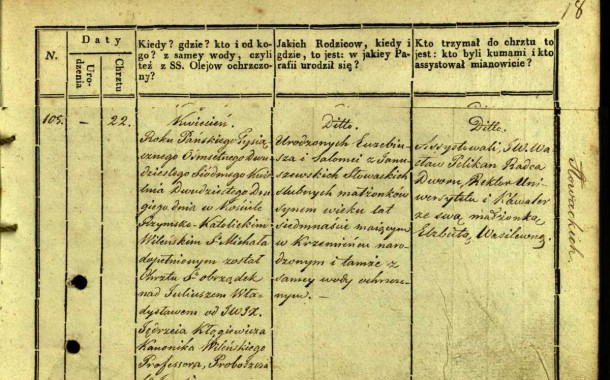 18
N.
Daty
Urodzenia
Chrztu
Kiedy? gdzie? kto i od ko-
go? z samey wody, czyli
też z SS. Olejów ochrzczo-
ny?
Jakich Rodzicow, kiedy i
gdzie, to jest: w jakiey Pa-
rafii urodził się?
Kto trzymał do chrztu to
jest: kto byli kumami i kto
assystował mianowicie?
105. — 22.
Kwiecień.
Roku Pańskiego Tysią-
cznego Osmsetnego Dwu-
dziestego Siódmego Kwie-
tnia Dwudziestego Dru-
giego dnia w Kościele
Rzymsko-Katolickim
Wileńskim S. Michała
dopełnionym został
Chrztu S. obrządek
nad Juliuszem Wła-
dysławem od JWJX.
Jędrzeia Kłągiewicza
Kanonika Wileńskiego
Professora, Proboszcza
Ditto.
Urodzonych Euzebiu-
sza i Salomei z Janu-
szewskich Słowackich
ślubnych małżonków
Synem wieku lat
Siedmnaście maiącym
w Krzemieńcu naro-
dzonym i tamże z
samey wody ochrzczo-
nym. —
Ditto.
Assystowali, JW. Wa-
cław Pelikan Radca
Dworu, Rektor Uni-
wersytetu i Kawaler
ze swą małżonką
Elżbietą Wasilewną.
Słowackich.